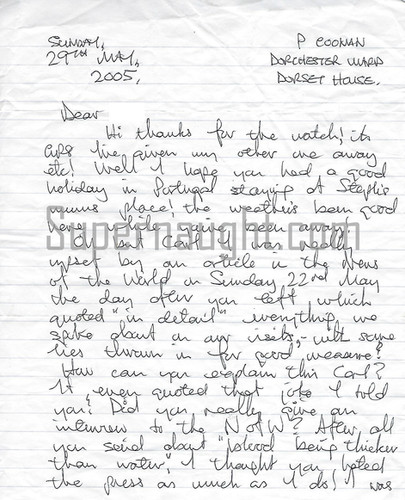 SUNDAY,
29TH MAY,
2005,
P COONAN
DORCHESTER WARD
DORSET HOUSE.
Dear
Hi thanks for the watch! its
I've given my other one away
etc! Well I hope you had a good
holiday in Portugal staying at
mums place! the weather's been good
here while you've been away.
Supernaught.com
but Carl I was really
upset by an article in the News
of the World on Sunday 22nd May
the day after you left which
quoted "in detail" everything we
spoke about on our visits, - with some
lies thrown in for good measure!
How can you explain this Carl?
It even quoted that joke I told
you! Did you really give an
interview to the N of W? After all
you said about "blood being thicker
than water," I thought you hated
the press as much as I do! I was